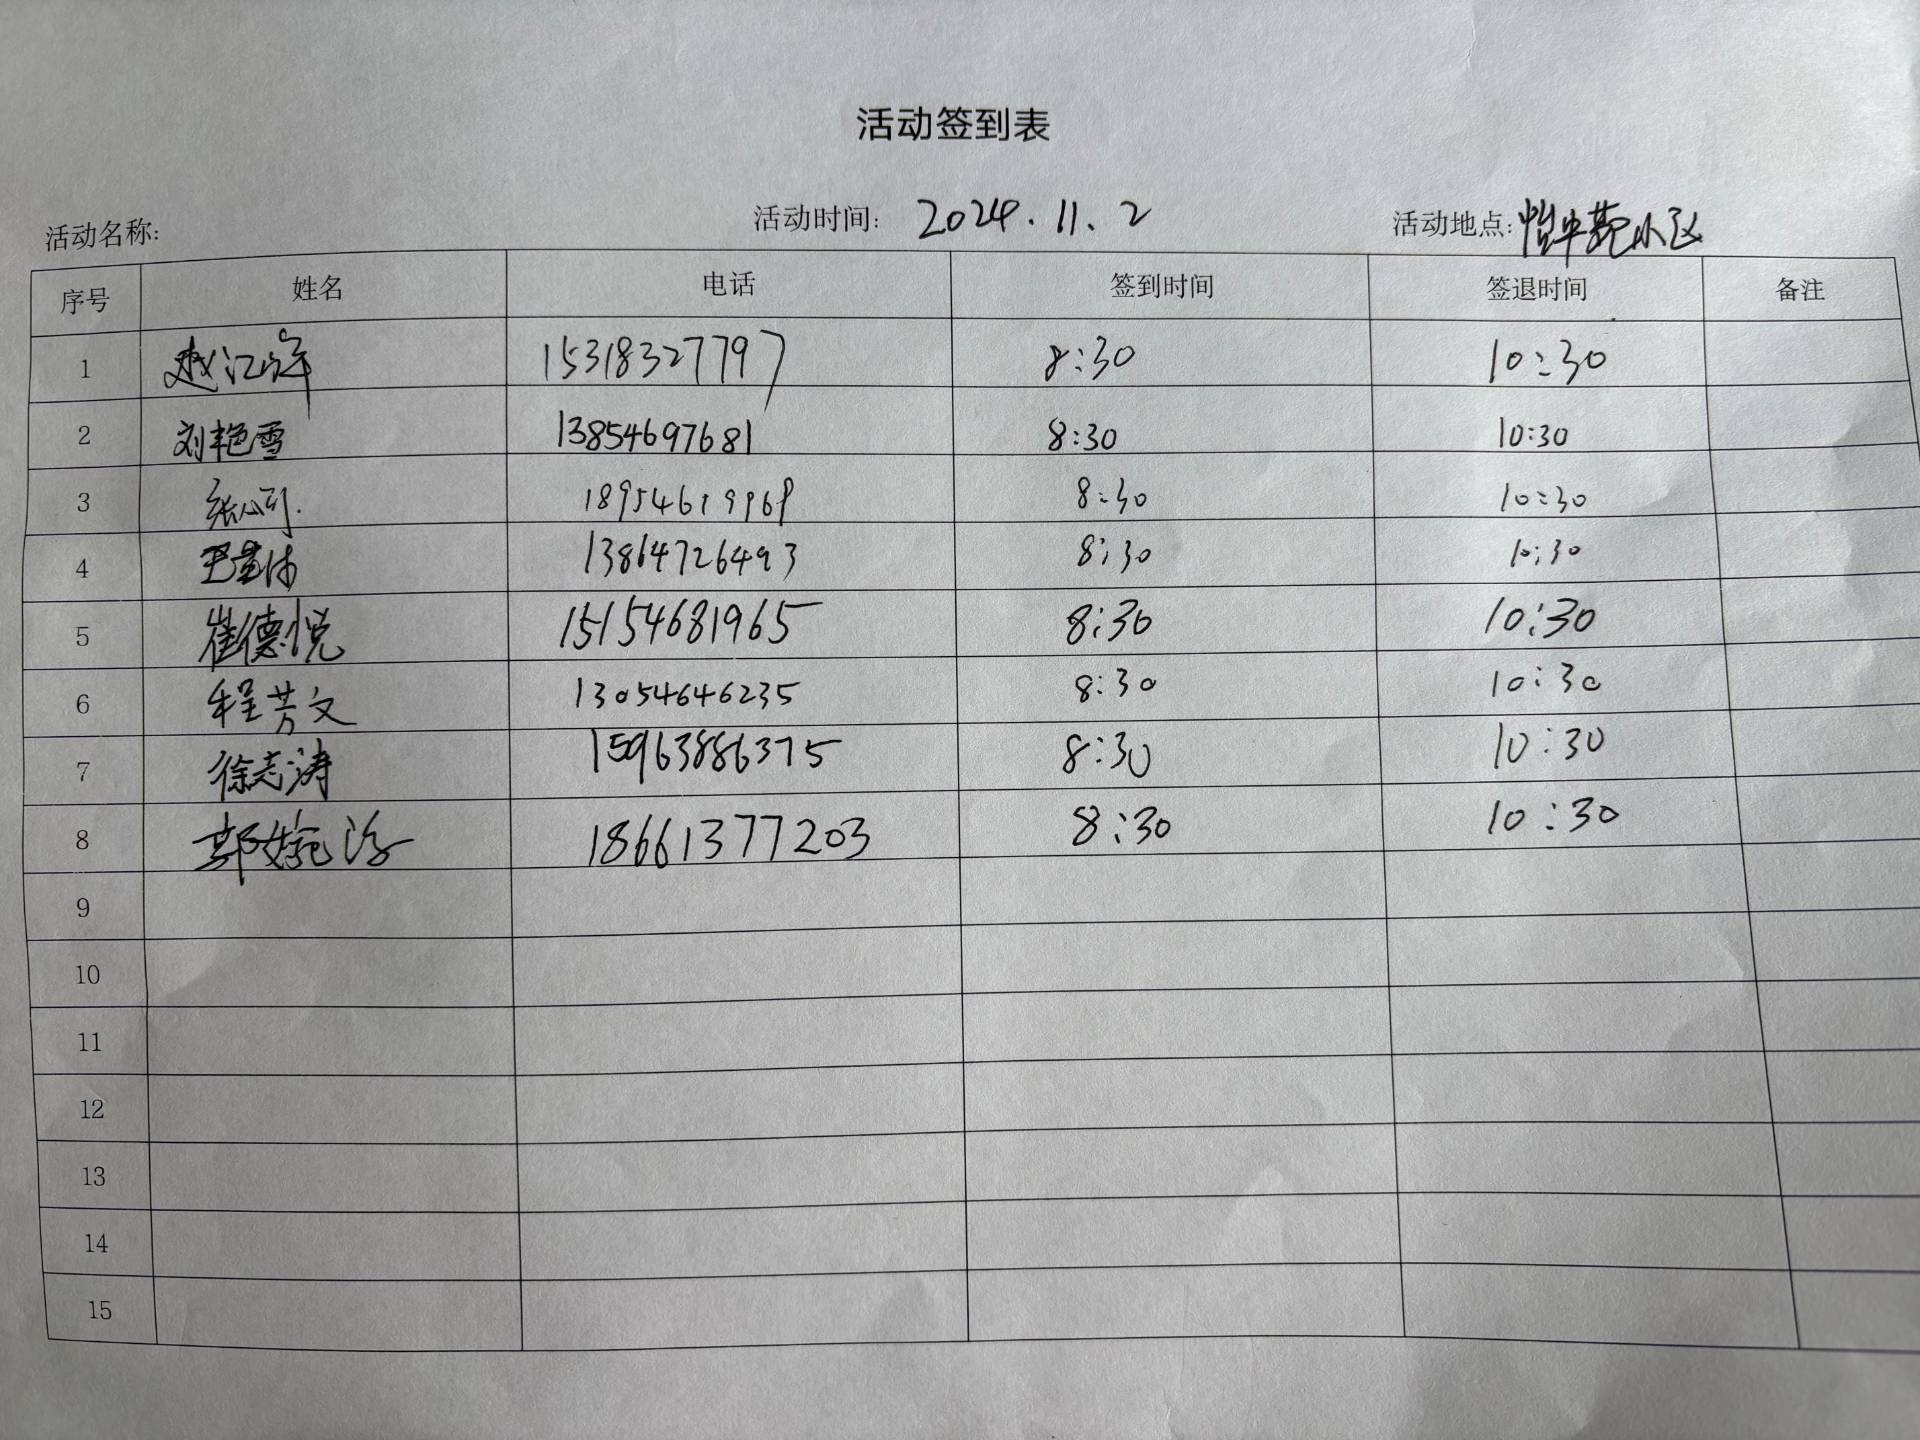 活动签到表
活动名称: 活动时间: 2024.11.2 活动地点: 小区
序号 姓名 电话 签到时间 签退时间 备注
1 15318327797 8:30 10:30
2 刘艳雪 13854697681 8:30 10:30
3 张 8:30 10:30
4 13864726493 8:30 10:30
5 崔德悦 15154681965 8:30 10:30
6 程芳文 13054646235 8:30 10:30
7 徐志涛 15963886375 8:30 10:30
8 郭婉 18661377203 8:30 10:30
9
10
11
12
13
14
15